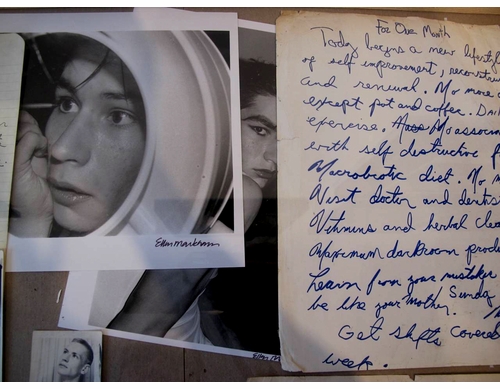 For One Month
Today begins a new lifestyle
of self improvement, reconstru
and renewal. No more
except pot and coffee. Dai
exercise. Mass No associa
with self destructive f
Macrobiotic diet. No m
Visit doctor and dentis
Vitamins and herbal clea
Maximum darkroom produ
Learn from your mistakes
be like your mother. Sunday
Get shifts covered
week.